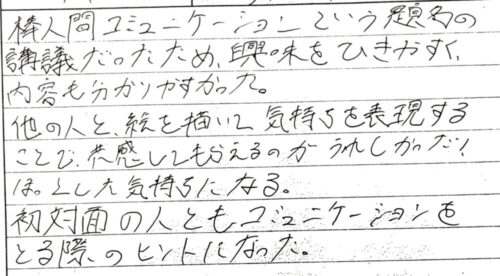 棒人間コミュニケーションという題名の
講議だったため、興味をひきやすく、
内容も分かりやすかった。
他の人と、絵を描いて気持ちを表現する
ことで、共感してもらえるのがうれしかった！
ほっとした気持ちになる。
初対面の人ともコミュニケーションを
とる際のヒントになった。